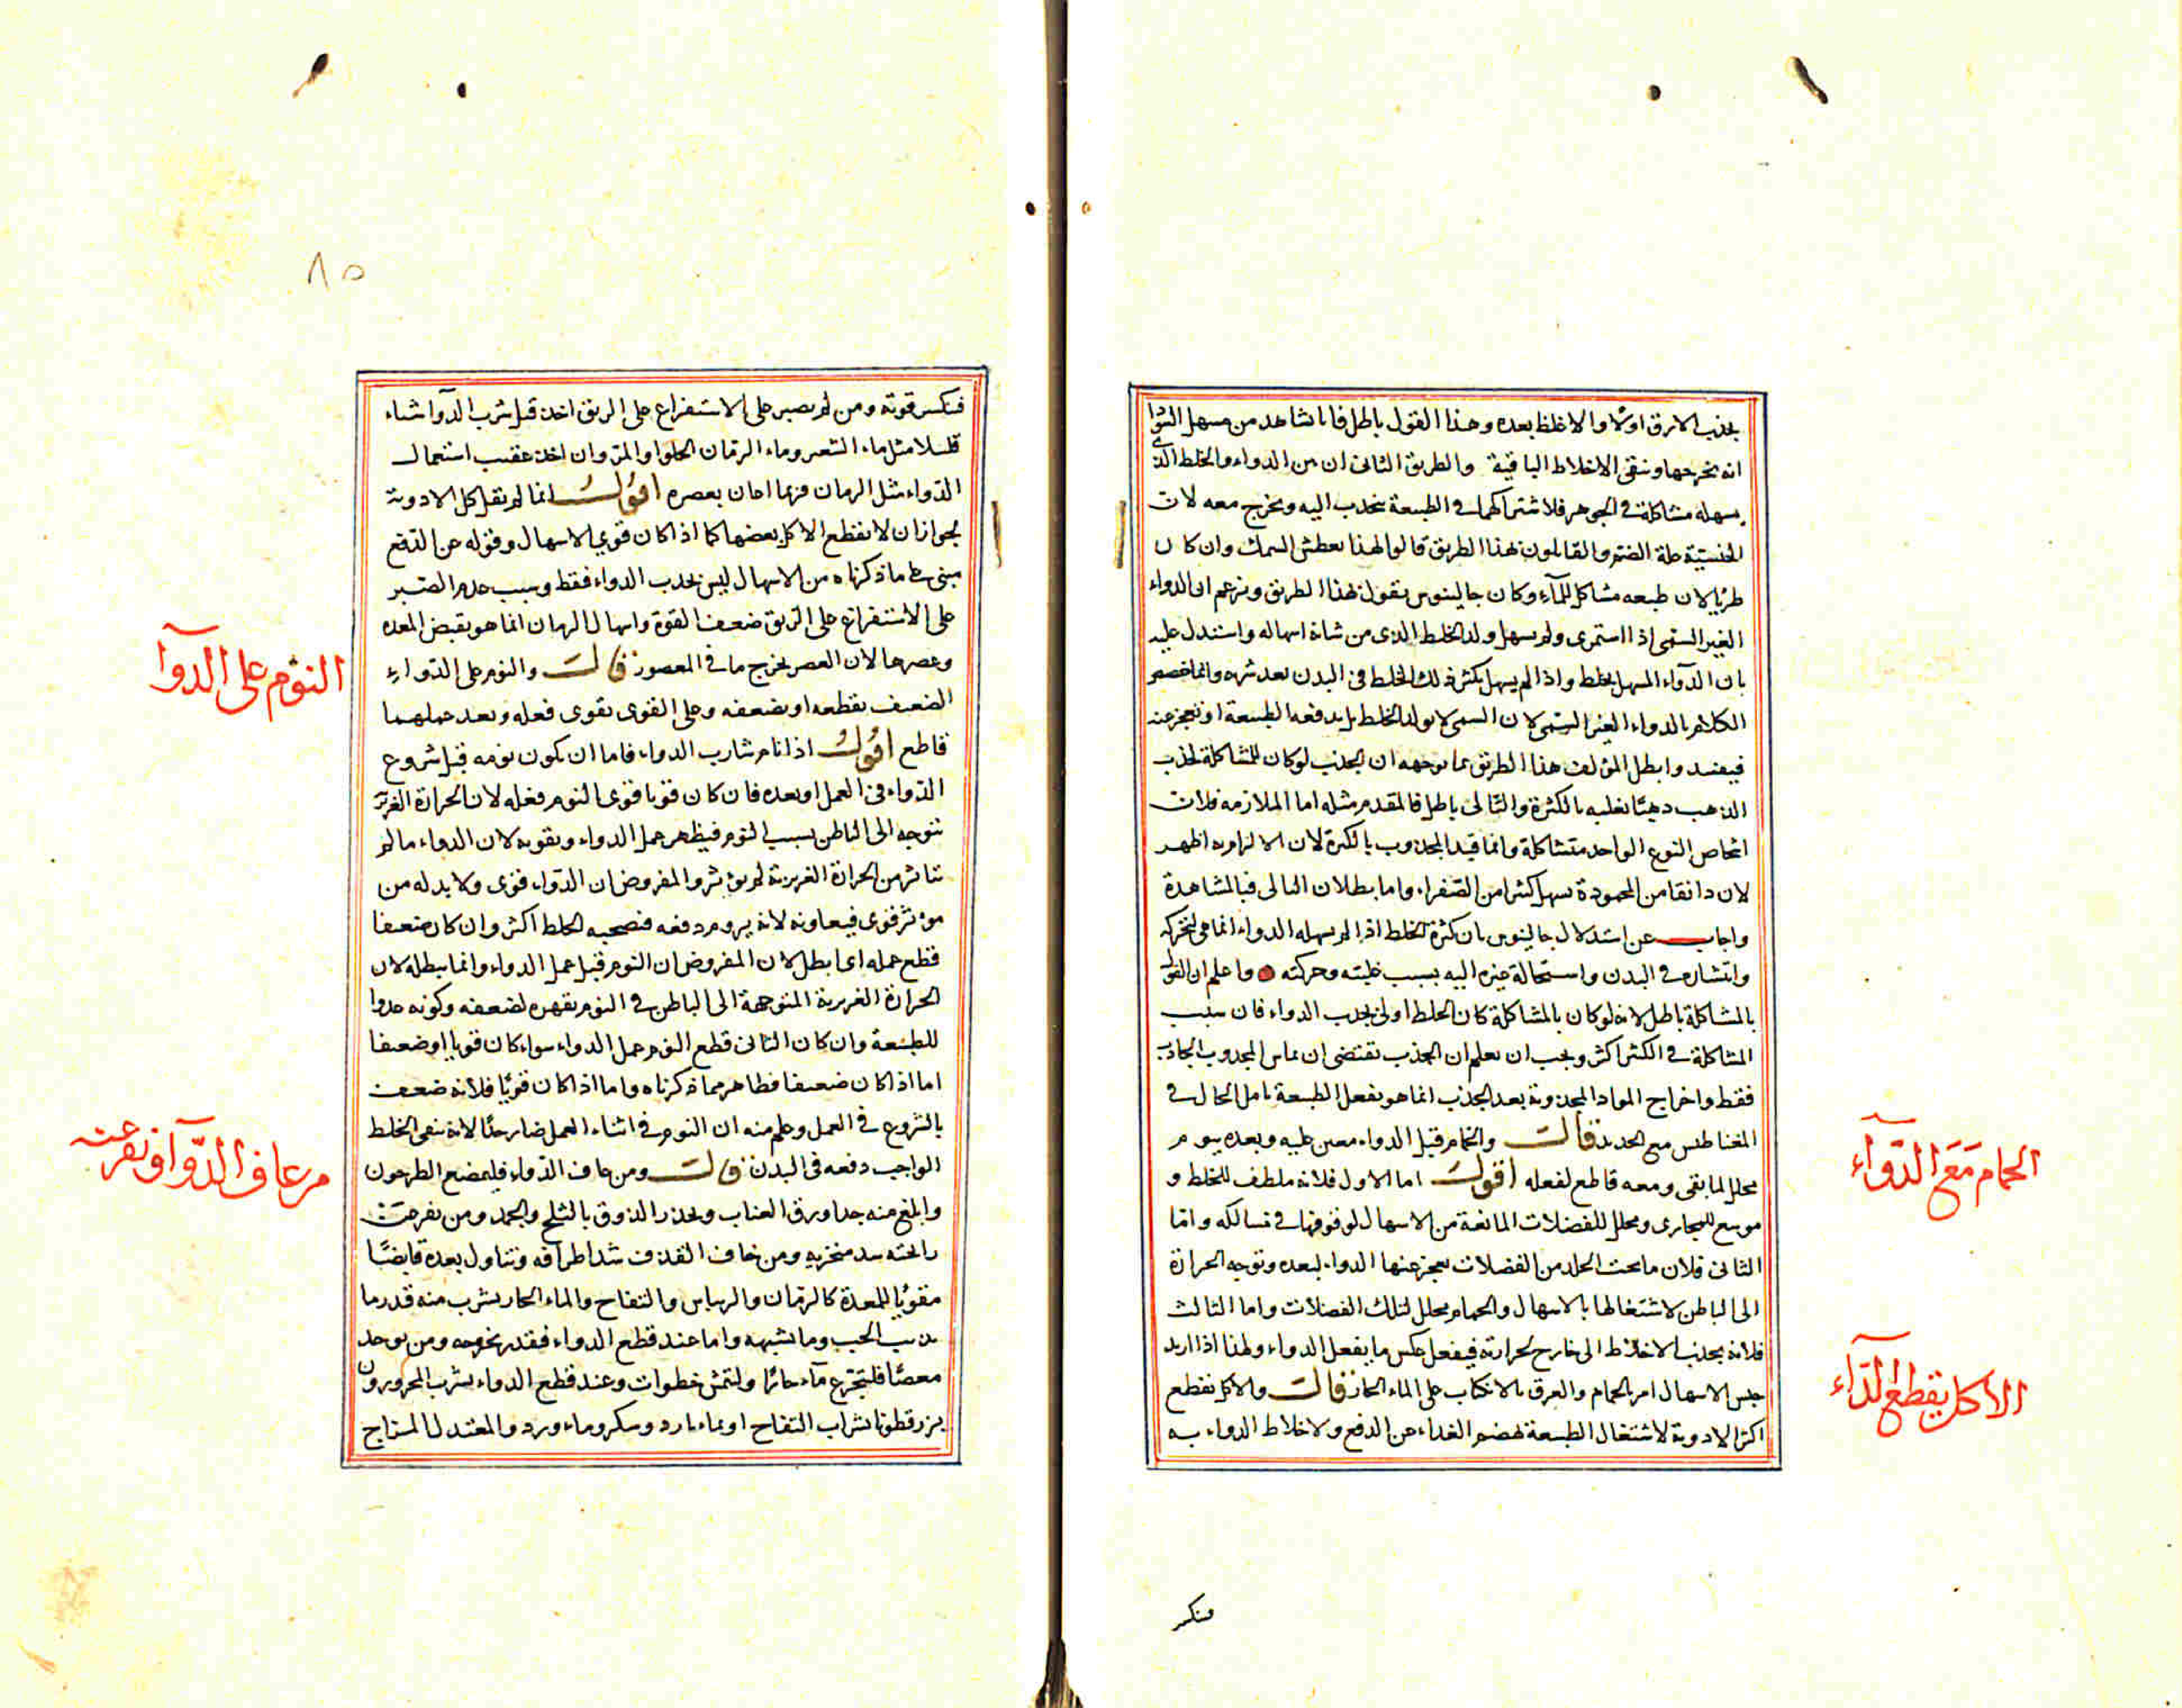 يجذب الارق اولا والاغلظ بعده وهذا القول باطل فانا نشاهد من مسهل السودا
انه يخرجها ونبقى الاخلاط الباقية والطريق الثانى ان بين الدواء والخلط الذى
يسهله مشاكلة في الجوهر فلاشتراكهما في الطبيعة ينجذب اليه ويخرج معه لان
الجنسية علة الضم والقايلون بهذا الطريق قالوا لهذا يعطش السمك وان كان
طريا لان طبعه مشاكل للماء وكان جالينوس يقول بهذا الطريق ويزعم ان الدواء
الغير السمى اذا استمرى ولم يسهل ولد الخلط الذى من شانه اسهاله واستدل عليه
بان الدواء المسهل لخلط اذا لم يسهل يكثر ذلك الخلط فى البدن بعد شربه وانما خصص
الكلام بالدواء الغير السمى لان السمى لا يولد الخلط بل يدفعه الطبيعة او تعجز عنه
فيفسد وابطل المؤلف هذا الطريق بما توجهه ان الجذب لو كان للمشاكلة لجذب
الذهب ذهبا يغلبه بالكثرة والتالى باطل فالمقدم مثله اما الملازمة فلان
اشخاص النوع الواحد متشاكلة وانما قيد المجذوب بالكثرة لان الالزام به اظهر
لان دانقا من المحمودة يسهل كثيرا من الصفراء واما بطلان التالى فبالمشاهدة
واجاب عن استدلال جالينوس بان كثرة الخلط اذا لم يسهله الدواء انما هى لتحركه
وانتشاره فى البدن واستحالة غيره اليه بسبب غلبته وحركته واعلم ان القول
بالمشاكلة باطل لانه لو كان بالمشاكلة كان الخلط اولى بجذب الدواء فان سبب
المشاكلة فى الكثير اكثر ويجب ان يعلم ان الجذب يقتضى ان يماس المجذوب الجاذب
فقط واخراج المواد المجذوبة بعد الجذب انما هو بفعل الطبيعة تامل الحال فى
المغناطيس مع الحديد قالت والحمام قبل الدواء معين عليه وبعده بيوم
محلل لما بقى ومعه قاطع لفعله اقول اما الاول فلانه ملطف للخلط و
موسع للمجارى ومحلل للفضلات المانعة من الاسهال لوقوفها فى مسالكه واما
الثانى فلان ما تحت الجلد من الفضلات يعجز عنها الدواء لبعده وتوجه الحرارة
الى الباطن لاشتغالها بالاسهال والحمام محلل لتلك الفضلات واما الثالث
فلانه يجذب الاخلاط الى خارج لحرارته فيفعل عكس ما يفعل الدواء ولهذا اذا اريد
حبس الاسهال امر بالحمام والعرق بالانكباب على الماء الحار قالت والاكل يقطع
اكثر الادوية لاشتغال الطبيعة بهضم الغذاء عن الدفع ولاختلاط الدواء به
الحمام مع الدواء
الاكل يقطع الدّاء
فنكسر
٨٥
فنكسر قوته ومن لم يصبر على الاستفراغ على الريق اخذ قبل شرب الدواء شيئا
قليلا مثل ماء الشعير وماء الرمان الحلو او المز وان اخذ عقيب استعمال
الدواء مثل الرمان فربما اعان بعصره اقول انما لم يقل كل الادوية
لجواز ان لا يقطع الاكل بعضها كما اذا كان قوى الاسهال وقوله عن الدفع
مبنى على ما ذكرناه من الاسهال ليس بجذب الدواء فقط وسبب عدم الصبر
على الاستفراغ على الريق ضعف القوة واسهال الرمان انما هو بقبض المعدة
وعصرها لان العصر يخرج ما فى المعصور قالت والنوم على الدواء
الضعيف يقطعه او يضعفه وعلى القوى يقوى فعله وبعد عملهما
قاطع اقول اذا نام شارب الدواء فاما ان يكون نومه قبل شروع
الدواء فى العمل او بعده فان كان قويا قوى النوم فعله لان الحرارة الغريزية
تتوجه الى الباطن بسبب النوم فيظهر عمل الدواء ويقويه لان الدواء ما لم
يتاثر من الحرارة الغريزية لم يؤثر والمفروض ان الدواء قوى ولا بد له من
مؤثر قوى فيعاونه لانه يروم دفعه فيصحبه الخلط اكثر وان كان ضعيفا
قطع عمله اى ابطل لان المفروض ان النوم قبل عمل الدواء وانما يبطله لان
الحرارة الغريزية المتوجهة الى الباطن فى النوم تقهره لضعفه وكونه عدوا
للطبيعة وان كان الثانى قطع النوم عمل الدواء سواء كان قويا او ضعيفا
اما اذا كان ضعيفا فظاهر مما ذكرناه واما اذا كان قويا فلانه ضعف
بالشروع فى العمل وعلم منه ان النوم فى اثناء العمل ضار جدا لانه يبقى الخلط
الواجب دفعه فى البدن قالت ومن عاف الدواء فليمضغ الطرخون
وابلغ منه جدا ورق العناب ويخدر الذوق بالثلج والجمد ومن نفر من
رائحته سد منخريه ومن خاف القذف شد اطرافه وتناول بعده قابضا
مقويا للمعدة كالرمان والريباس والتفاح والماء الحار يشرب منه قدر ما
يذيب الحب وما يشبهه واما عند قطع الدواء فقدر يخرجه ومن يوجد
مغصا فليتجرع ماء حارا وليتمش خطوات وعند قطع الدواء يشرب المحرورون
بزرقطونا بشراب التفاح او بماء بارد وسكر وماء ورد والمعتدل المزاج
النوم على الدوا
من عاف الدّواء ونفر عنه